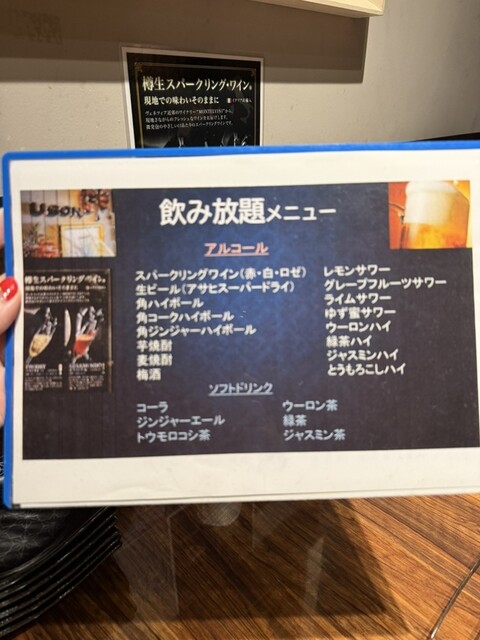 樽生スパークリング・ワイン。
現地での味わいそのままに
飲み放題メニュー
アルコール
スパークリングワイン（赤・白・ロゼ）
生ビール（アサヒスーパードライ）
角ハイボール
角コークハイボール
角ジンジャーハイボール
芋焼酎
麦焼酎
梅酒
レモンサワー
グレープフルーツサワー
ライムサワー
ゆず蜜サワー
ウーロンハイ
緑茶ハイ
ジャスミンハイ
とうもろこしハイ
ソフトドリンク
コーラ
ジンジャーエール
トウモロコシ茶
ウーロン茶
緑茶
ジャスミン茶
樽生スパークリング・ワイン。
現地での味わいそのままに